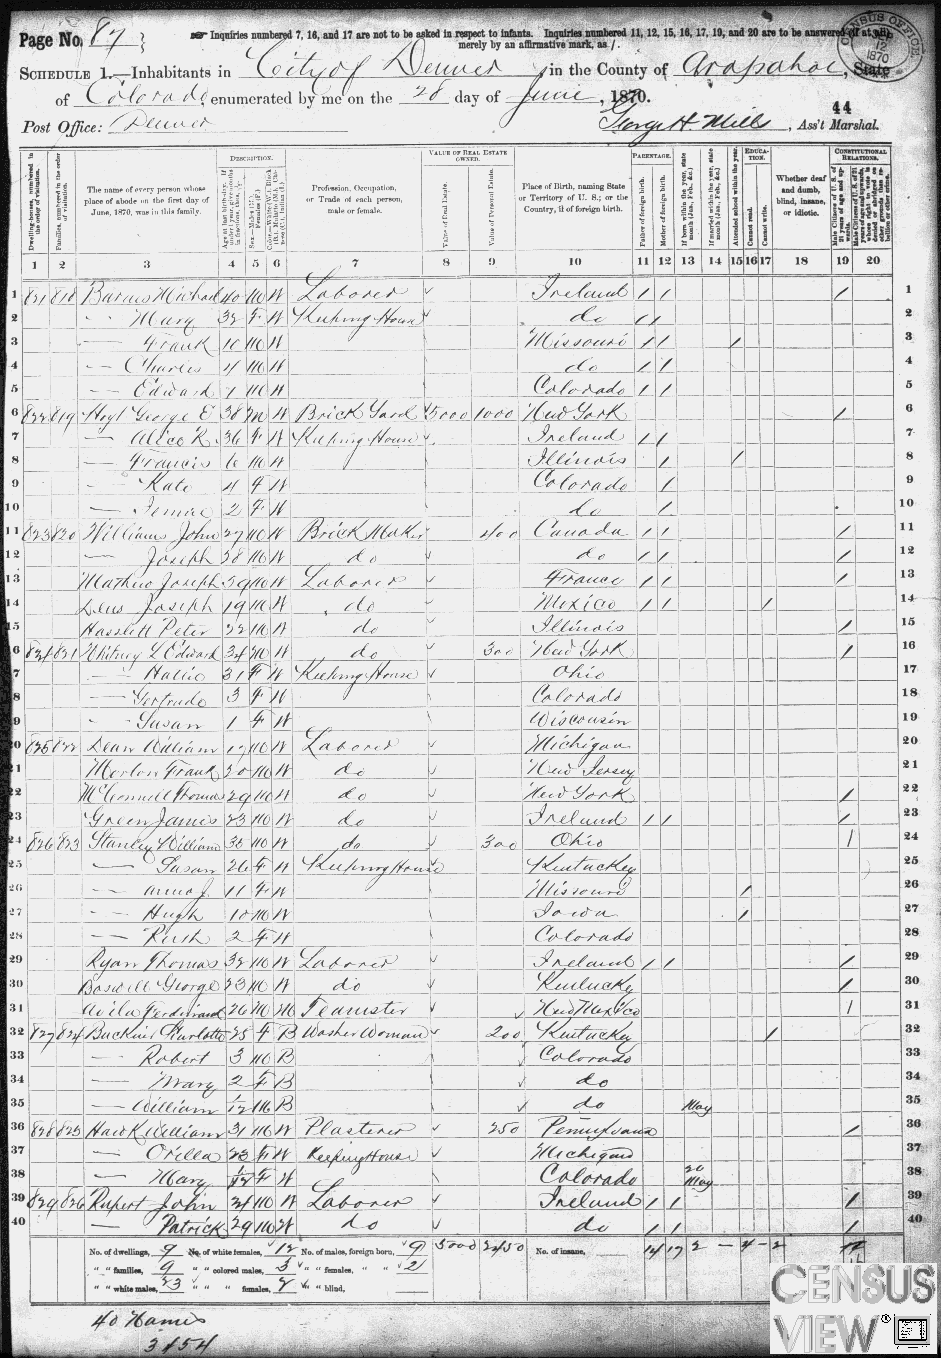 Page No. 87
☞ Inquiries numbered 7, 16, and 17 are not to be asked in respect to infants. Inquiries numbered 11, 12, 15, 16, 17, 19, and 20 are to be answered (if at all)
merely by an affirmative mark, as /.
CENSUS OFFICE 12 1870
SCHEDULE 1.—Inhabitants in City of Denver, in the County of Arapahoe, State
of Colorado, enumerated by me on the 28 day of June, 1870.
44
Post Office: Denver George H. Mills, Ass't Marshal.
Dwelling-houses, numbered in the order of visitation.
Families, numbered in the order of visitation.
The name of every person whose place of abode on the first day of June, 1870, was in this family.
DESCRIPTION.
Profession, Occupation, or Trade of each person, male or female.
VALUE OF REAL ESTATE OWNED.
Value of Real Estate.
Value of Personal Estate.
Place of Birth, naming State or Territory of U. S.; or the Country, if of foreign birth.
PARENTAGE.
Father of foreign birth.
Mother of foreign birth.
If born within the year, state month (Jan., Feb., &c.)
If married within the year, state month (Jan., Feb., &c.)
Attended school within the year.
EDUCATION.
Cannot read.
Cannot write.
Whether deaf and dumb, blind, insane, or idiotic.
CONSTITUTIONAL RELATIONS.
1 2 3 4 5 6 7 8 9 10 11 12 13 14 15 16 17 18 19 20
1 821 818 Michael 40 M W Laborer Ireland / / / 1
2 — Mary 32 F W Keeping House do / / 2
3 — Frank 10 M W Missouri / / / 3
4 — Charles 4 M W do / / 4
5 — Edward 1 M W Colorado / / 5
6 822 819 Hoyt George E 38 M W Brick Yard 5000 1000 New York / 6
7 — Alice R 36 F W Keeping House Ireland / / 7
8 — Francis 6 M W Illinois / / 8
9 — Kate 4 F W Colorado / 9
10 — 2 F W do / 10
11 823 820 Williams John 27 M W Brick Maker 400 Canada / / / 11
12 — Joseph 38 M W do do / / / 12
13 Mathew Joseph 39 M W Laborer France / / / 13
14 Joseph 19 M W do Mexico / / / 14
15 Peter 22 M W do Illinois / 15
6 824 821 Whitney L Edward 34 M W do 300 New York / 16
7 — Hallie 31 F W Keeping House Ohio 17
8 — Gertrude 3 F W Colorado 18
9 — Susan 1 F W Wisconsin 19
20 825 822 Dean William 17 M W Laborer Michigan 20
21 Morton Frank 20 M W do New Jersey 21
22 McConnell Thomas 29 M W do New York / 22
23 Green James 23 M W do Ireland / / / 23
24 826 823 Stanley William 30 M W do 300 Ohio / 24
25 — Susan 26 F W Keeping House Kentuckey 25
26 — Anna J. 11 F W Missouri / 26
27 — Hugh 10 M W Iowa / 27
28 — Ruth 2 F W Colorado 28
29 Ryan Thomas 32 M W Laborer Ireland / / / 29
30 Boswell George 23 M W do Kentuckey / 30
31 Avila Ferdinand 26 M W Teamster New Mexico / 31
32 827 824 Charlotte 25 F B Washer Woman 200 Kentuckey / 32
33 — Robert 3 M B Colorado 33
34 — Mary 2 F B do 34
35 — William 1/12 M B do May 35
36 828 825 Hawk William 31 M W Plasterer 250 / 36
37 — Orilla 23 F W Keeping House Michigan 37
38 — Mary 1/12 F W Colorado May 38
39 829 826 Rupert John 24 M W Laborer Ireland / / / 39
40 — Patrick 29 M W do do / / / 40
No. of dwellings, 9 No. of white females, 12 No. of males, foreign born, 9 5000 2450 No. of insane, 14 17 2 — 4 — 2
" " families, 9 " " colored males, 3 " " females, " " 2
" " white males, 23 " " " females, 2 " " blind,
40 Names
3154
CENSUS
VIEW®